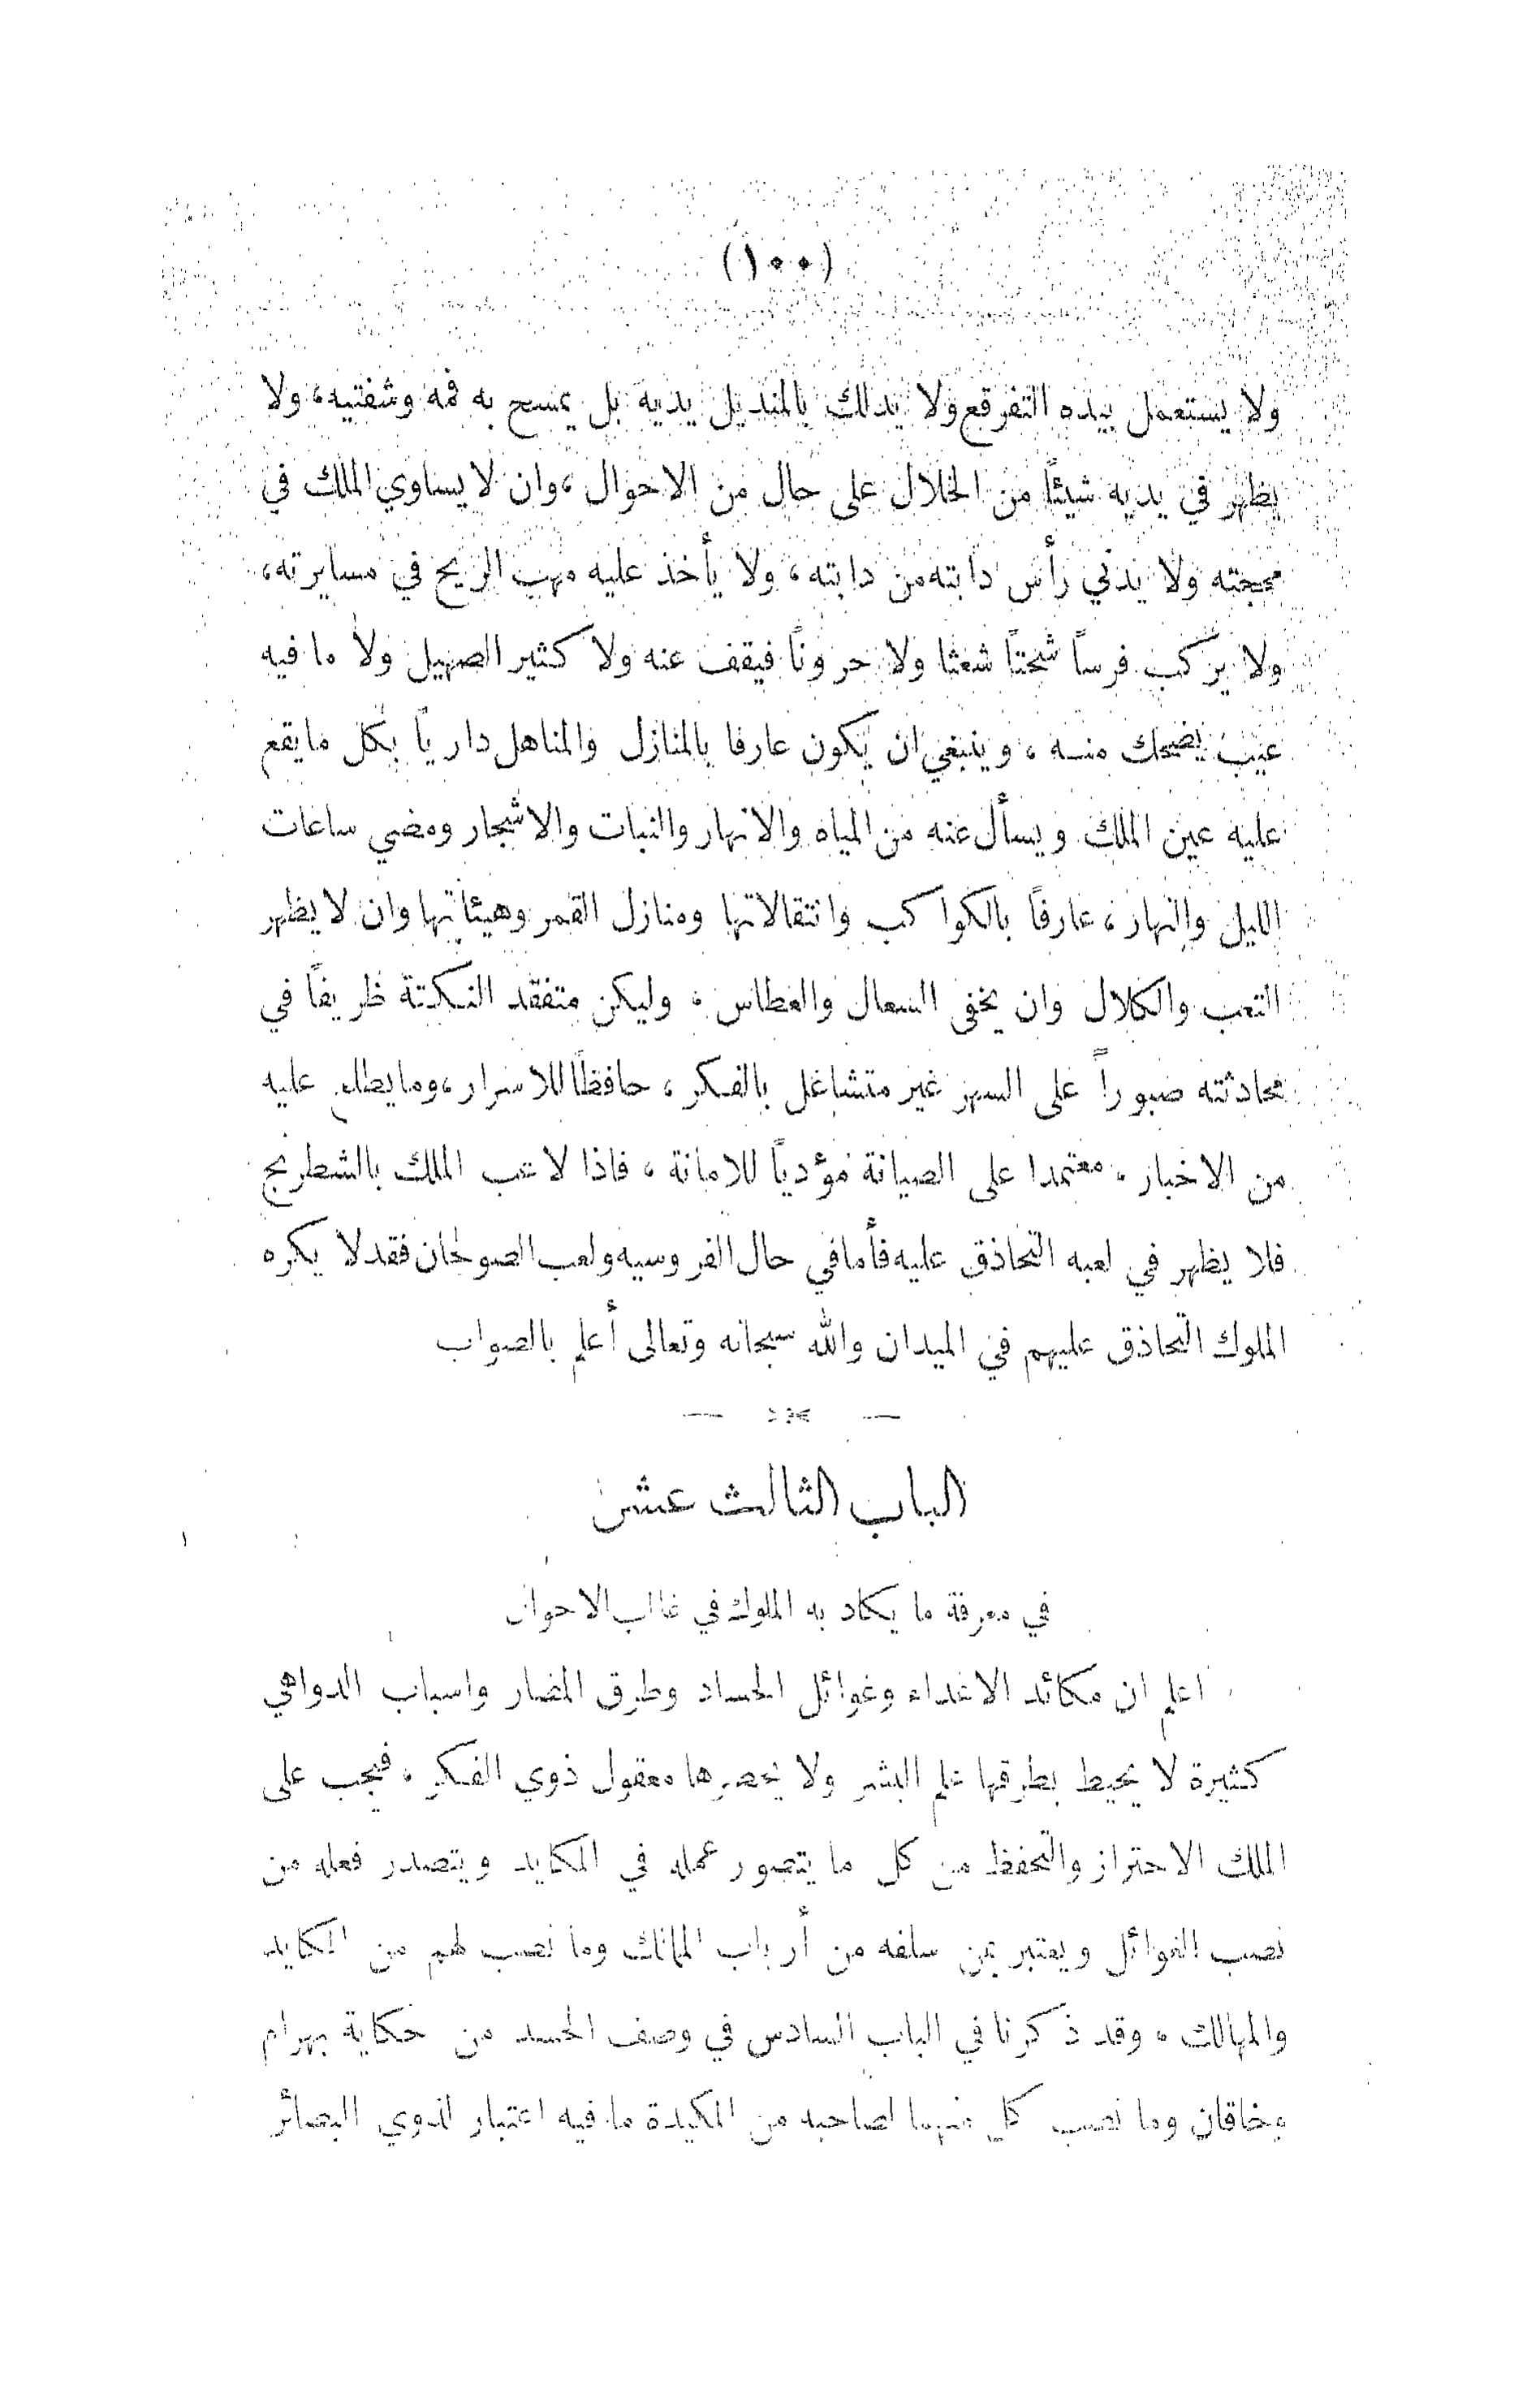 (١٠٠)
ولا يستعمل بيده التفرقع ولا يدلك بالمنديل يديه بل يمسح به فمه وشفتيه، ولا
يظهر في يديه شيئاً من الخلال على حال من الاحوال، وان لا يساوي الملك في
محجته ولا يدني رأس دابته من دابته، ولا يأخذ عليه مهب الريح في مسايرته،
ولا يركب فرساً شختاً شعثا ولا حروناً فيقف عنه ولا كثير الصهيل ولا ما فيه
عيب يضحك منه، وينبغي ان يكون عارفا بالمنازل والمناهل دارياً بكل ما يقع
عليه عين الملك ويسأل عنه من المياه والانهار والنبات والاشجار ومضي ساعات
الليل والنهار، عارفاً بالكواكب وانتقالاتها ومنازل القمر وهيئاتها وان لا يظهر
التعب والكلال وان يخفي السعال والعطاس، وليكن متفقد النكتة ظريفاً في
محادثته صبوراً على السهر غير متشاغل بالفكر، حافظاً للاسرار، وما يطلع عليه
من الاخبار، معتمدا على الصيانة مؤدياً للامانة، فاذا لاعب الملك بالشطرنج
فلا يظهر في لعبه التحاذق عليه فأما في حال الفروسيه ولعب الصولجان فقد لا يكره
الملوك التحاذق عليهم في الميدان والله سبحانه وتعالى أعلم بالصواب
الباب الثالث عشر
في معرفة ما يكاد به الملوك في غالب الاحوال
اعلم ان مكائد الاعداء وغوائل الحساد وطرق المضار واسباب الدواهي
كثيرة لا يحيط بطرقها علم البشر ولا يحصرها معقول ذوي الفكر، فيجب على
الملك الاحتراز والتحفظ من كل ما يتصور عمله في المكايد ويتصدر فعله من
نصب الغوائل ويعتبر بمن سلفه من أرباب الممالك وما نصب لهم من المكايد
والمهالك، وقد ذكرنا في الباب السادس في وصف الحسد من حكاية بهرام
وخاقان وما نصب كل منهما لصاحبه من المكيدة ما فيه اعتبار لذوي البصائر